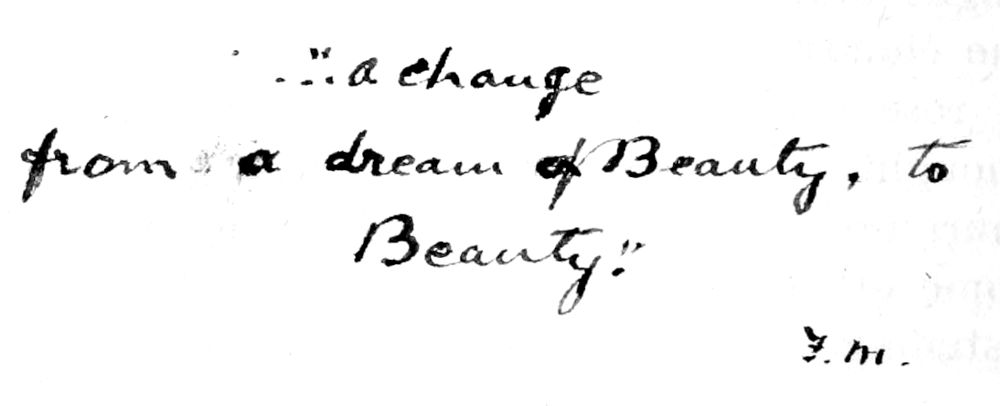 ..."a change
from a dream of Beauty, to
Beauty."
F. M.